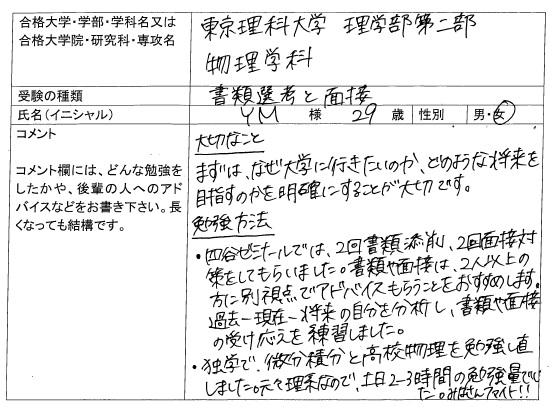 合格大学・学部・学科名又は
合格大学院・研究科・専攻名
東京理科大学 理学部第二部
物理学科
受験の種類
書類選考と面接
氏名(イニシャル)
YM 様 29 歳 性別 男・女
コメント
コメント欄には、どんな勉強を
したかや、後輩の人へのアド
バイスなどをお書き下さい。長
くなっても結構です。
大切なこと
まずは、なぜ大学に行きたいのか、どのような将来を
目指すのかを明確にすることが大切です。
勉強方法
・四谷ゼミナールでは、2回書類添削、2回面接対
策をしてもらいました。書類や面接は、2人以上の
方に別視点でアドバイスもらうことをおすすめします。
過去-現在-将来の自分を分析し、書類や面接
の受け応えを練習しました。
・独学で、微分積分と高校物理を勉強し直
しました。元々理系なので、土日2-3時間の勉強量でし
た。みなさんファイト!!